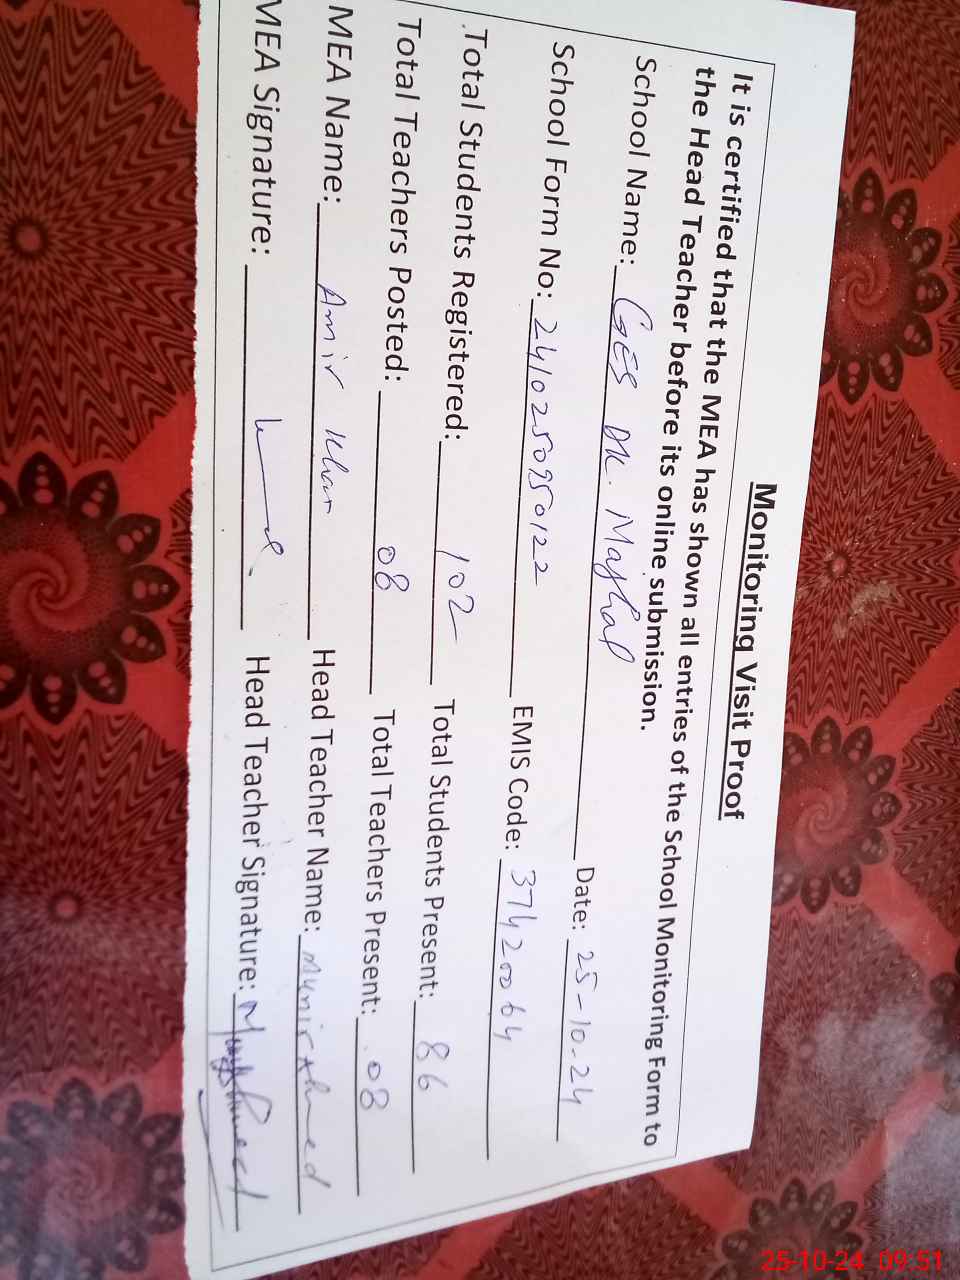 Monitoring Visit Proof
It is certified that the MEA has shown all entries of the School Monitoring Form to
the Head Teacher before its online submission.
School Name: GES DK. Mashal Date: 25-10-24
School Form No: 2410250950122 EMIS Code: 37420064
Total Students Registered: 102 Total Students Present: 86
Total Teachers Posted: 08 Total Teachers Present: 08
MEA Name: Amir Khan Head Teacher Name: Munir Ahmed
MEA Signature: Head Teacher Signature:
25-10-24 09:51